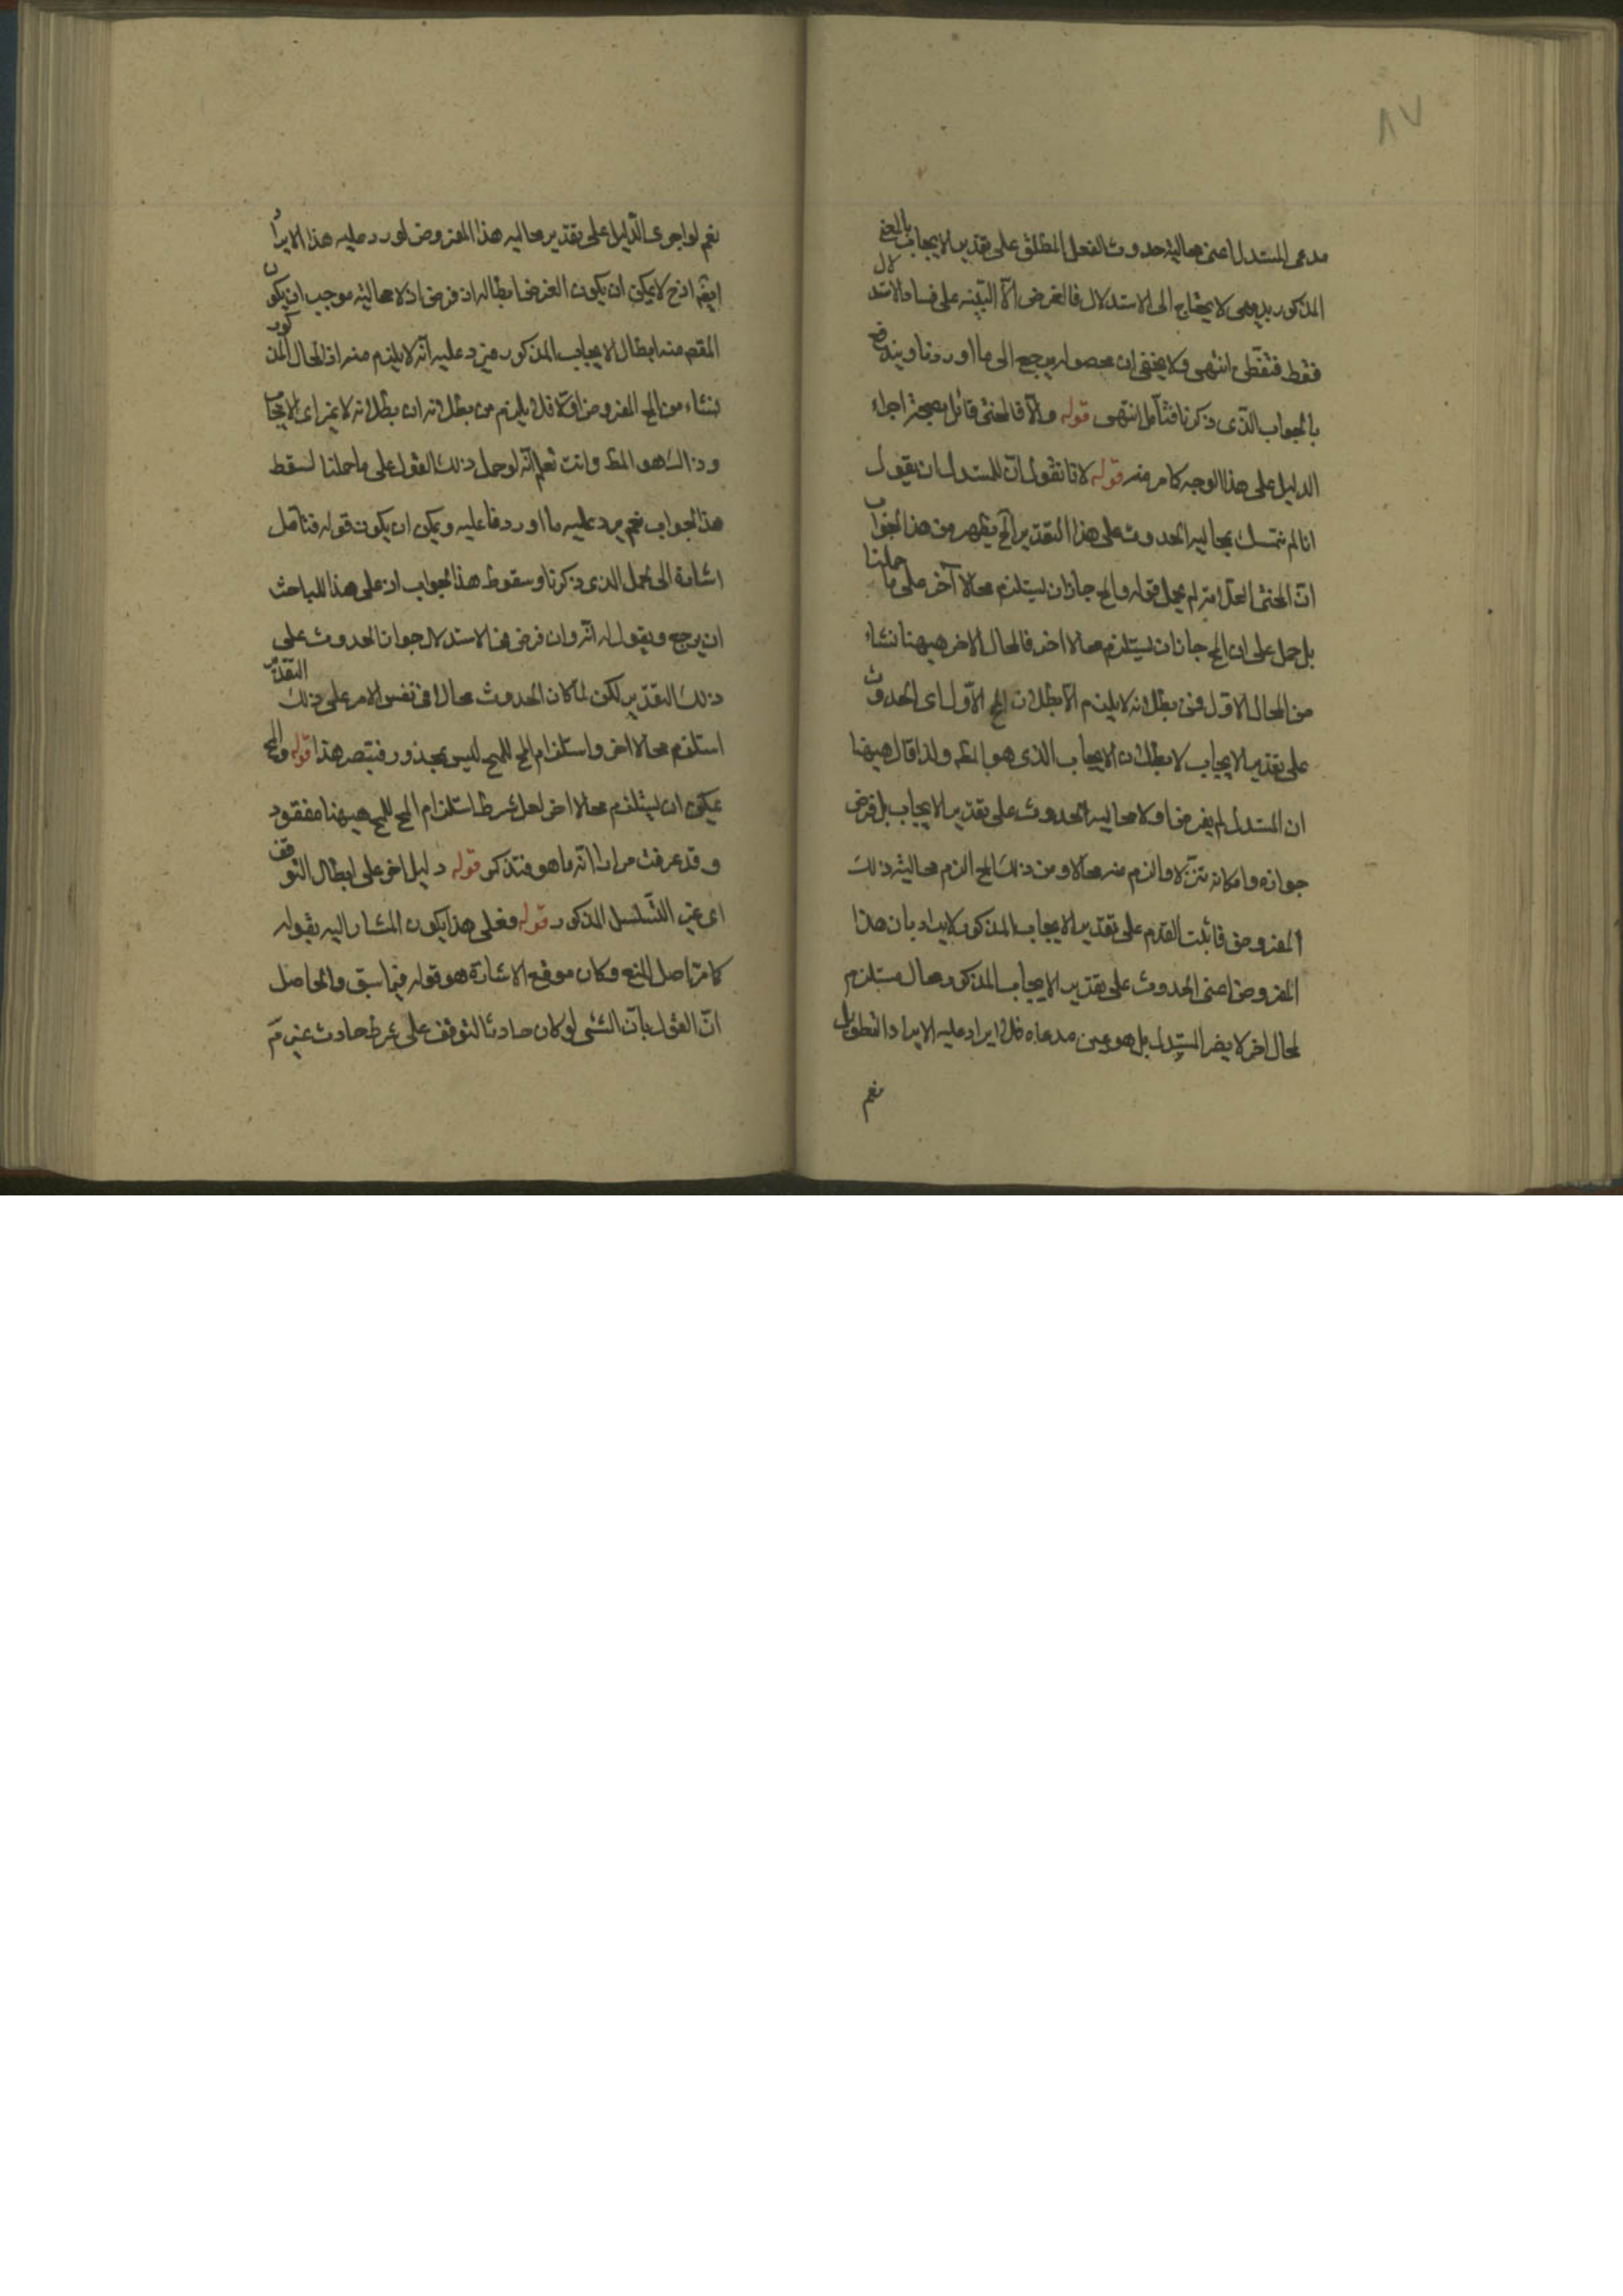 ٨٧
مدعى المستدل اعنى محالية حدوث الفعل المطلق على تقدير الايجاب بالمعنى
المذكور بديهى لا يحتاج الى الاستدلال فالغرض الآ التنبيه على فساد الاستدلال
فقط فتفطن انتهى ولا يخفى ان محصوله يرجع الى ما اوردنا ويندفع
بالجواب الذى ذكرنا فتأمل انتهى قوله والآ فالمحشى قائل بصحة اجراء
الدليل على هذا الوجه كما مر منه قوله لانا نقول انّ للمستدل ان يقول
انا لم نتمسك بمحالية الحدوث على هذا التقدير الخ يظهر من هذا الجواب
انّ المحشى العلامة لم يحمل قوله والمح جاز ان يستلزم محالا آخر على ما حملنا
بل حمل على ان المح جاز ان يستلزم محالا اخر فالمحال الاخر هيهنا نشاء
من المحال الاول فمن بطلانه لا يلزم الا بطلان المح الاوّل اى الحدوث
على تقدير الايجاب لا بطلان الايجاب الذى هو المط ولذا قال هيهنا
ان المستدل لم يفرض اولا محالية الحدوث على تقدير الايجاب بل فرض
جوازه وامكانه تنزلا والزم منه محالا ومن ذلك المح الزم محالية ذلك
المفروض فاثبت القدم على تقدير الايجاب المذكور فلا يراد بان هذا
المفروض اعنى الحدوث على تقدير الايجاب المذكور محال مستلزم
لمحال اخر لا يضر المستدل بل هو عين مدعاه فلا ايراد عليه الايراد التطويل
نعم
نعم لو اجرى الدّليل على تقدير محالية هذا المفروض لورد عليه هذا الايراد
ايضا اذ ح لا يمكن ان يكون الغرض ابطاله اذ فرض اولا محاليته موجب ان يكون
المقصم منه ابطال الايجاب المذكور فيرد عليه انّه لا يلزم منه اذ المحال المذكور
نشاء من المح المفروض اوّلا فلا يلزم من بطلانه الا بطلانه لا غير اى الايجاب
وذلك هو المط وانت تعلم انّه لو حمل ذلك القول على ما حملنا لسقط
هذا الجواب نعم يرد عليه ما اوردنا عليه ويمكن ان يكون قوله فتأمل
اشارة الى الحمل الذى ذكرنا وسقوط هذا الجواب اذ على هذا للباحث
ان يرجع ويقول له انّه وان فرض هذا الاستدلال جواز الحدوث على
ذلك التقدير لكن لما كان الحدوث محالا فى نفس الامر على ذلك التقدير
استلزم محالا اخر واستلزام المح للمح ليس بمحذور فتبصر هذا قوله والمح
يمكن ان يستلزم محالا اخر لعل شرط استلزام المح للمح هيهنا مفقود
وقد عرفت مرارا انّه ما هو فتذكر قوله دليل اخر على ابطال التوقف
اى غير التّسلسل المذكور قوله فعلى هذا يكون المشار اليه بقوله
كما مرّ اصل المنع وكان موقع الاشارة هو قوله فيما سبق والحاصل
انّ القول بانّ الشئ لو كان حادثا لتوقف على شرط حادث غير مم